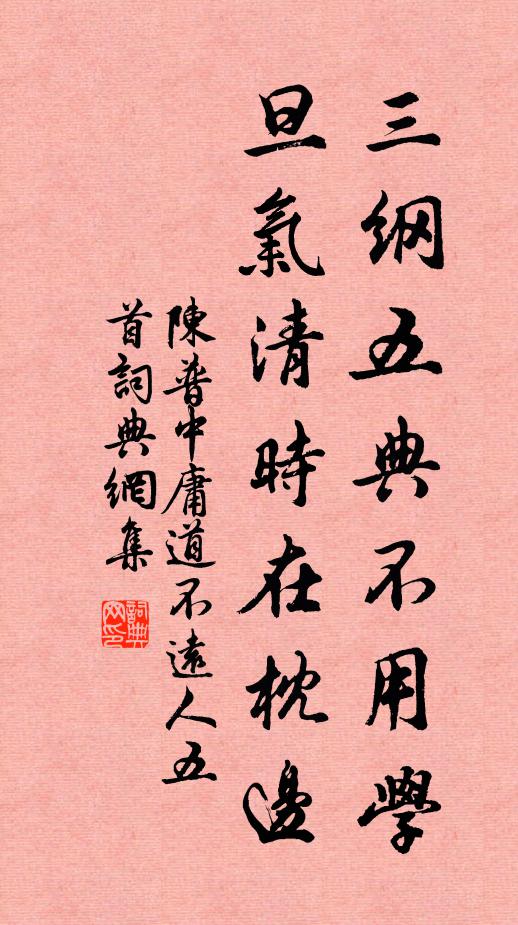 三綱五典不用學
旦氣清時在枕邊
陳普中庸道不遠人五
首詞典網集
詞典
网印